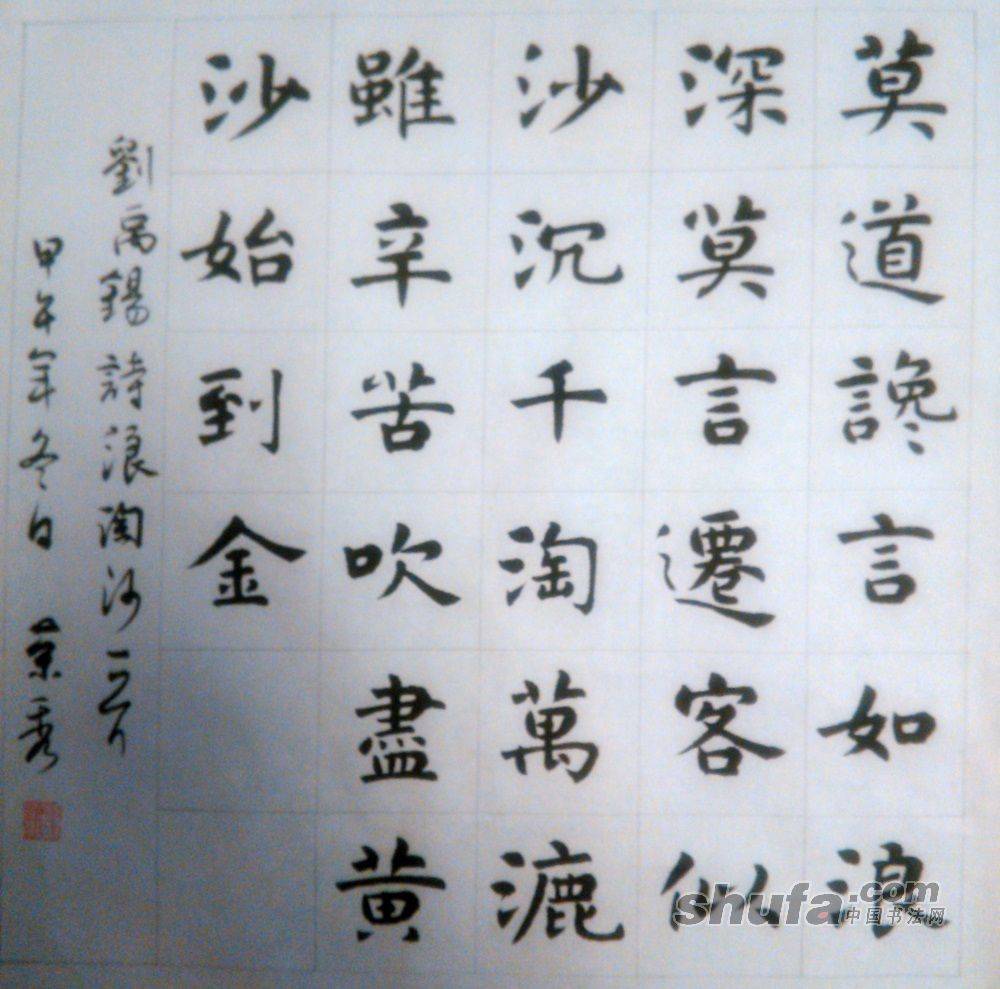 莫道讒言如浪
深莫言遷客似
沙沉千淘萬漉
雖辛苦吹盡黄
沙始到金
劉禹錫詩浪淘沙一首
甲午年冬日
shufa.com
中国书法网